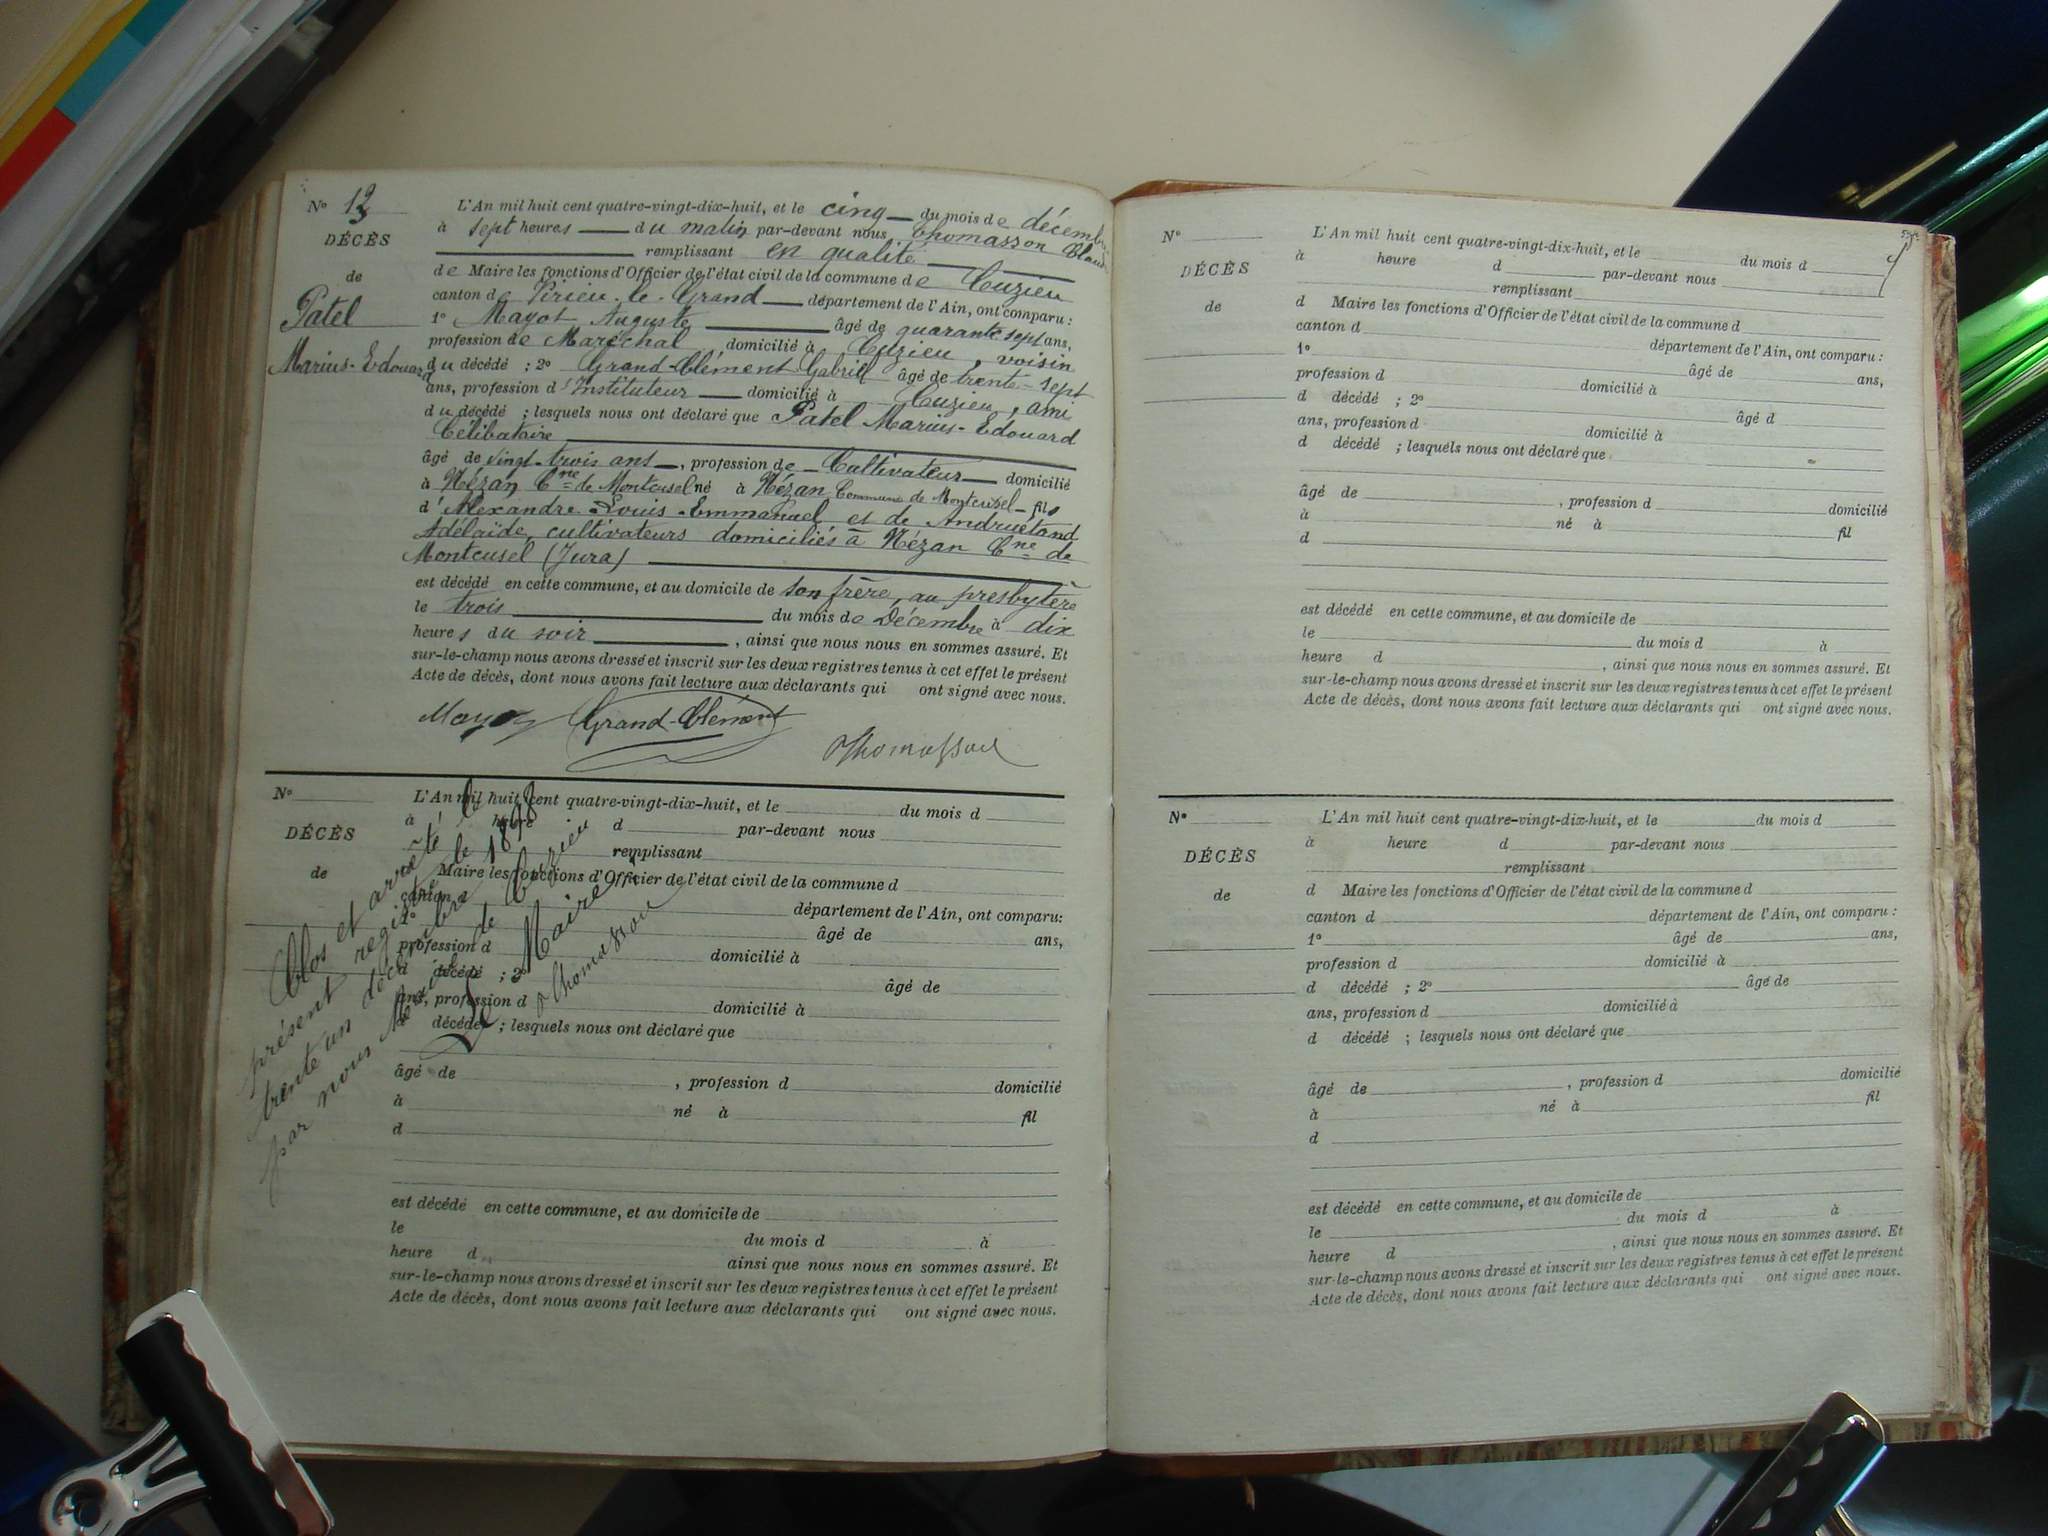 Nº 13
DÉCÈS
de
Patel
Marius-Edouard
L'An mil huit cent quatre-vingt-dix-huit, et le cinq du mois de décembre
à sept heures du matin par-devant nous Thomasson Claude
remplissant en qualité
de Maire les fonctions d'Officier de l'état civil de la commune de Cuzieu
canton de Virieu-le-Grand département de l'Ain, ont comparu :
1º Mayot Auguste âgé de quarante sept ans,
profession de Maréchal domicilié à Cuzieu, voisin
du décédé ; 2º Grand-Clément Gabriel âgé de trente-sept
ans, profession d'Instituteur domicilié à Cuzieu, ami
du décédé ; lesquels nous ont déclaré que Patel Marius-Edouard
Célibataire
âgé de vingt-trois ans, profession de Cultivateur domicilié
à Nézan Cne de Montcusel né à Nézan Commune de Montcusel fils
d'Alexandre Louis Emmanuel et de Andruétand
Adélaïde, cultivateurs domiciliés à Nézan Cne de
Montcusel (Jura)
est décédé en cette commune, et au domicile de son frère, au presbytère
le trois du mois de Décembre à dix
heures du soir, ainsi que nous nous en sommes assuré. Et
sur-le-champ nous avons dressé et inscrit sur les deux registres tenus à cet effet le présent
Acte de décès, dont nous avons fait lecture aux déclarants qui ont signé avec nous.
Mayot Grand-Clément
Thomasson
Nº
DÉCÈS
de
L'An mil huit cent quatre-vingt-dix-huit, et le du mois d
à heure d par-devant nous
remplissant
Maire les fonctions d'Officier de l'état civil de la commune d
canton d département de l'Ain, ont comparu:
1º âgé de ans,
profession d domicilié à
d décédé ; 2º âgé de
ans, profession d domicilié à
d décédé ; lesquels nous ont déclaré que
âgé de , profession d domicilié
à né à fil
d
est décédé en cette commune, et au domicile de
le du mois d à
heure d ainsi que nous nous en sommes assuré. Et
sur-le-champ nous avons dressé et inscrit sur les deux registres tenus à cet effet le présent
Acte de décès, dont nous avons fait lecture aux déclarants qui ont signé avec nous.
Clos et arrêté le
présent registre le
trente un décembre 1898
par nous Maire de Cuzieu
Le Maire
Thomasson
Nº
DÉCÈS
de
L'An mil huit cent quatre-vingt-dix-huit, et le du mois d
à heure d par-devant nous
remplissant
d Maire les fonctions d'Officier de l'état civil de la commune d
canton d département de l'Ain, ont comparu :
1º âgé de ans,
profession d domicilié à
d décédé ; 2º âgé d
ans, profession d domicilié à
d décédé ; lesquels nous ont déclaré que
âgé de , profession d domicilié
à né à fil
d
est décédé en cette commune, et au domicile de
le du mois d à
heure d , ainsi que nous nous en sommes assuré. Et
sur-le-champ nous avons dressé et inscrit sur les deux registres tenus à cet effet le présent
Acte de décès, dont nous avons fait lecture aux déclarants qui ont signé avec nous.
Nº
DÉCÈS
de
L'An mil huit cent quatre-vingt-dix-huit, et le du mois d
à heure d par-devant nous
remplissant
d Maire les fonctions d'Officier de l'état civil de la commune d
canton d département de l'Ain, ont comparu :
1º âgé de ans,
profession d domicilié à
d décédé ; 2º âgé de
ans, profession d domicilié à
d décédé ; lesquels nous ont déclaré que
âgé de , profession d domicilié
à né à fil
d
est décédé en cette commune, et au domicile de
le du mois d à
heure d , ainsi que nous nous en sommes assuré. Et
sur-le-champ nous avons dressé et inscrit sur les deux registres tenus à cet effet le présent
Acte de décès, dont nous avons fait lecture aux déclarants qui ont signé avec nous.